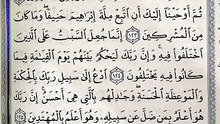 ثُمَّ أَوْحَيْنَا إِلَيْكَ أَنِ اتَّبِعْ مِلَّةَ إِبْرَاهِيمَ حَنِيفًا ۖ وَمَا كَانَ
مِنَ الْمُشْرِكِينَ ﴿١٢٣﴾ إِنَّمَا جُعِلَ السَّبْتُ عَلَى الَّذِينَ
اخْتَلَفُوا فِيهِ ۚ وَإِنَّ رَبَّكَ لَيَحْكُمُ بَيْنَهُمْ يَوْمَ الْقِيَامَةِ فِيمَا
كَانُوا فِيهِ يَخْتَلِفُونَ ﴿١٢٤﴾ ادْعُ إِلَىٰ سَبِيلِ رَبِّكَ بِالْحِكْمَةِ
وَالْمَوْعِظَةِ الْحَسَنَةِ ۖ وَجَادِلْهُم بِالَّتِي هِيَ أَحْسَنُ ۚ إِنَّ رَبَّكَ
هُوَ أَعْلَمُ بِمَن ضَلَّ عَن سَبِيلِهِ ۖ وَهُوَ أَعْلَمُ بِالْمُهْتَدِينَ ﴿١٢٥﴾